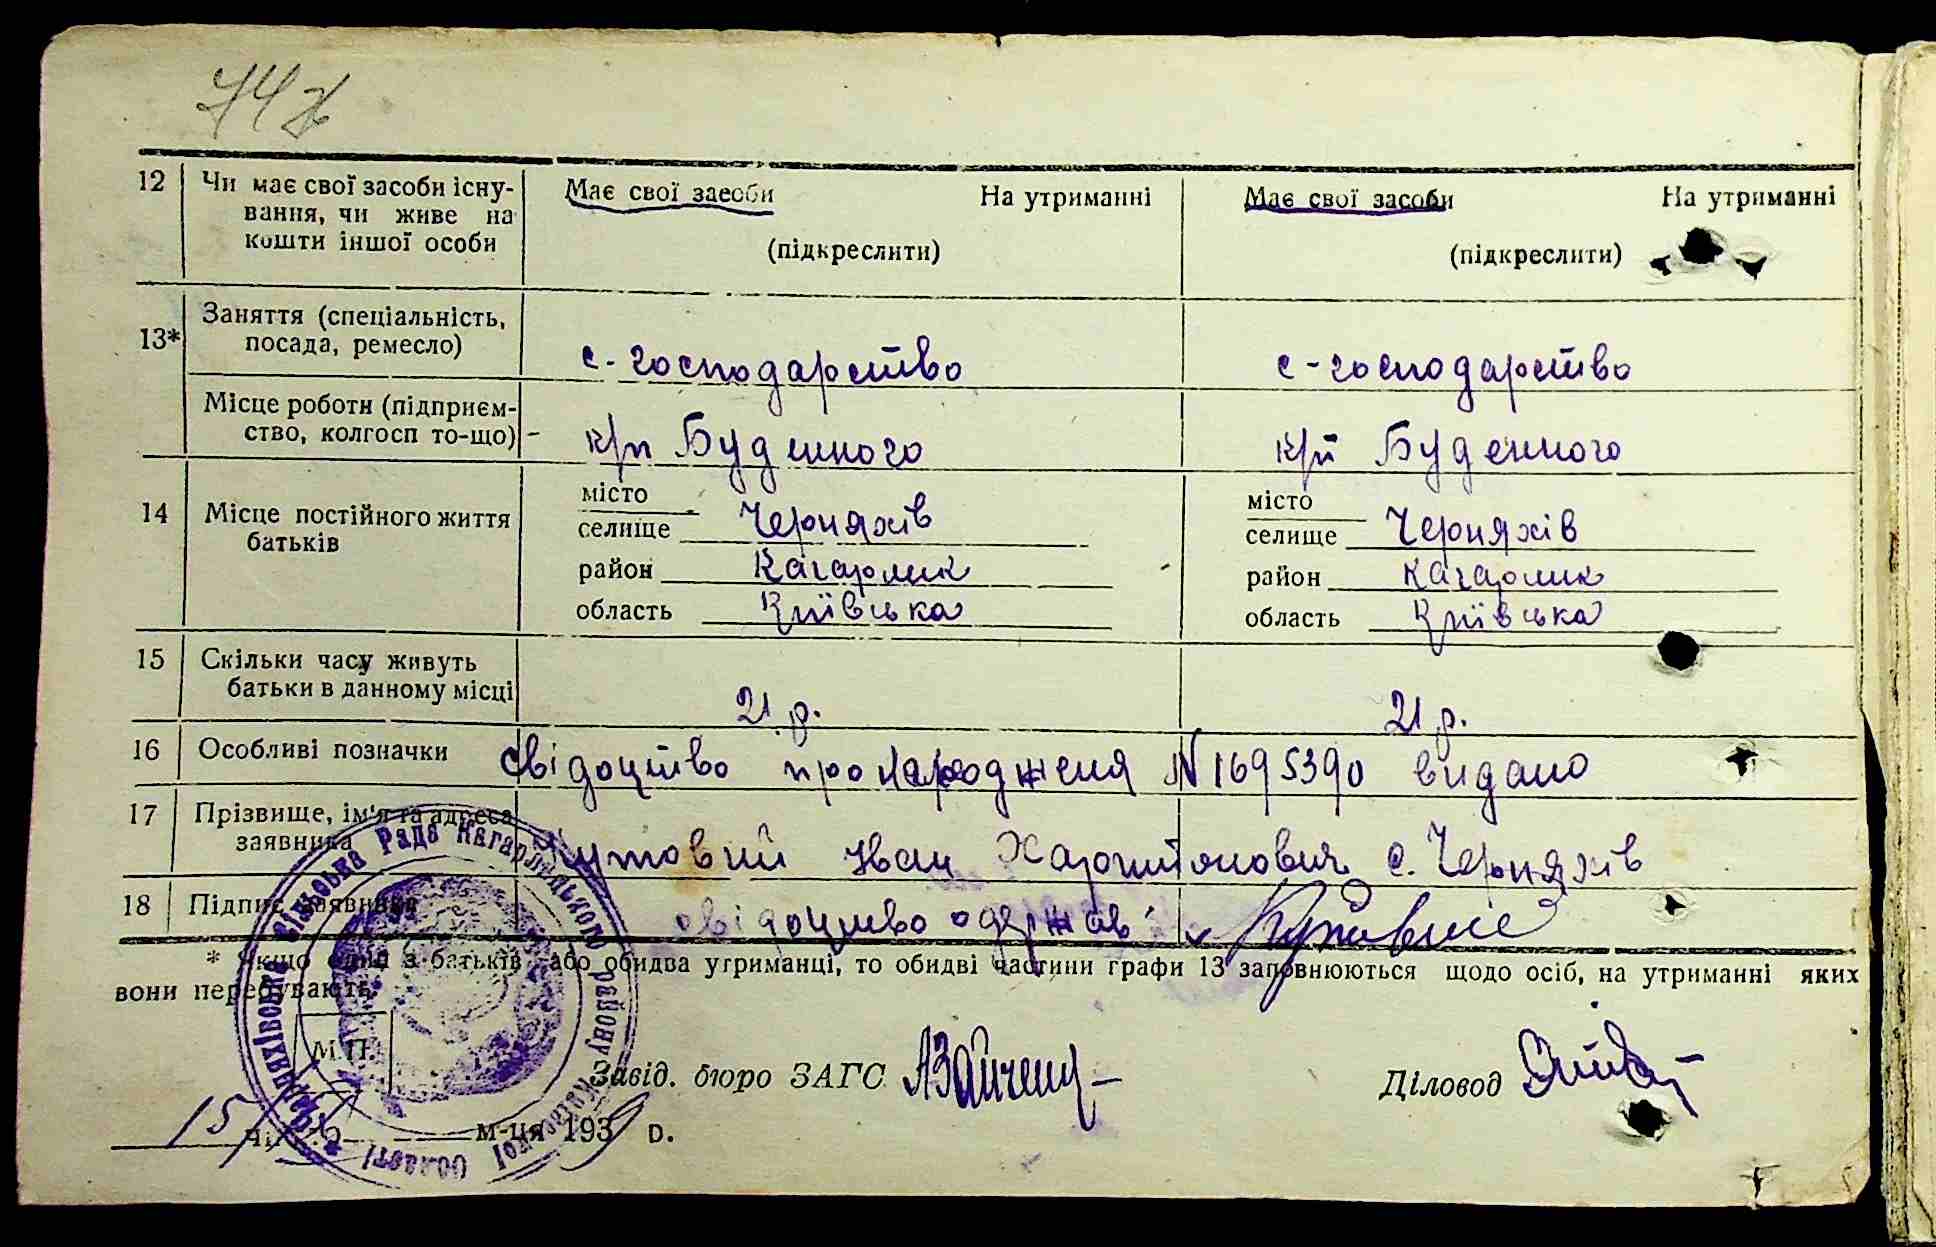 74
12 Чи має свої засоби існу- Має свої засоби На утриманні Має свої засоби На утриманні
вання, чи живе на
кошти іншої особи (підкреслити) (підкреслити)
13* Заняття (спеціальність,
посада, ремесло) с-господарство с-господарство
Місце роботи (підприєм-
ство, колгосп то-що) - к/п Буденного к/п Буденного
14 Місце постійного життя
батьків
місто місто
селище Черняхів селище Черняхів
район Кагарлик район Кагарлик
область Київська область Київська
15 Скільки часу живуть
батьки в данному місці 21 р. 21 р.
16 Особливі позначки Свідоцтво про народженя N 1695390 видано
17 Прізвище, ім'я та адреса
заявника Кутовий Іван Харитонович с. Черняхів
18 Підпис заявника свідоцтво одержав Кутовий
* Якщо один з батьків або обидва утриманці, то обидві частини графи 13 заповнюються щодо осіб, на утриманні яких
вони перебувають.
М.П.
Завід. бюро ЗАГС Діловод
15 м-ця 1939 р.
Черняхівська Сільська Рада Кагарлицького району Київської Області